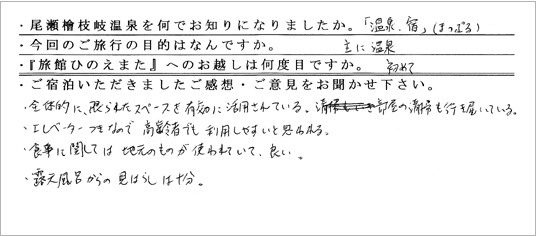 ・尾瀬檜枝岐温泉を何でお知りになりましたか。「温泉.宿」(まっぷる)
・今回のご旅行の目的はなんですか。 主に温泉
・『旅館ひのえまた』へのお越しは何度目ですか。 初めて
・ご宿泊いただきましたご感想・ご意見をお聞かせ下さい。
・全体的に、限られたスペースを有効に活用されている。 部屋の清掃も行き届いている。
・エレベーターつきなので 高齢者でも利用しやすいと思われる。
・食事に関しては 地元のものが使われていて、良い。
・露天風呂からの見はらしは十分。